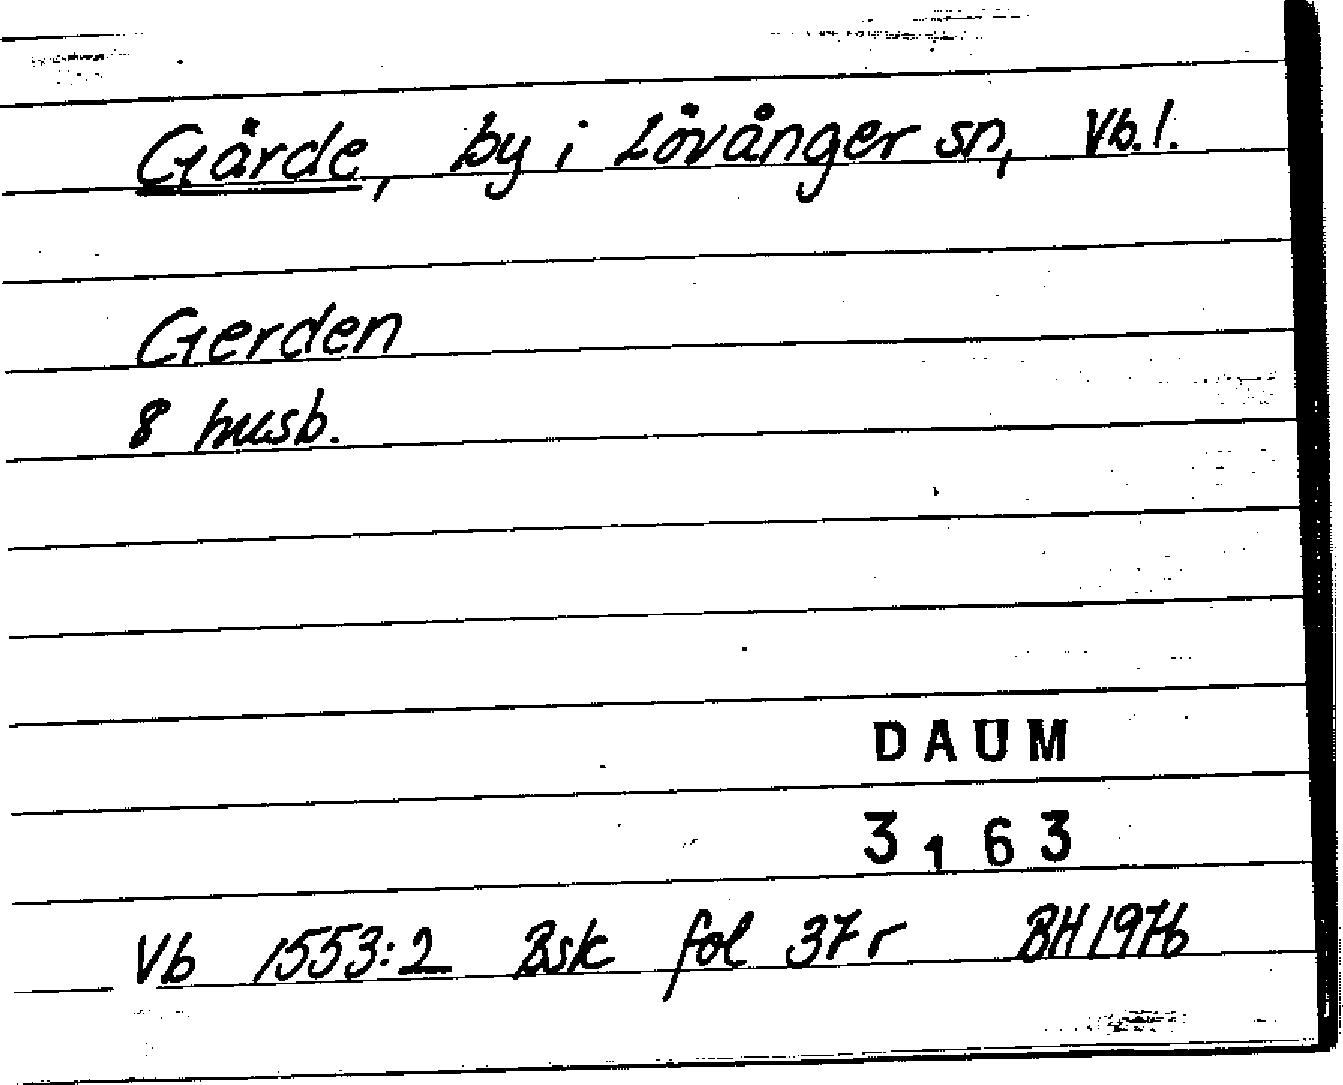 Gärde, by i Lövånger sn, Vb.l.
Gerden
8 husb.
DAUM
3163
Vb 1553:2 Bsk fol 37 r BH 1976